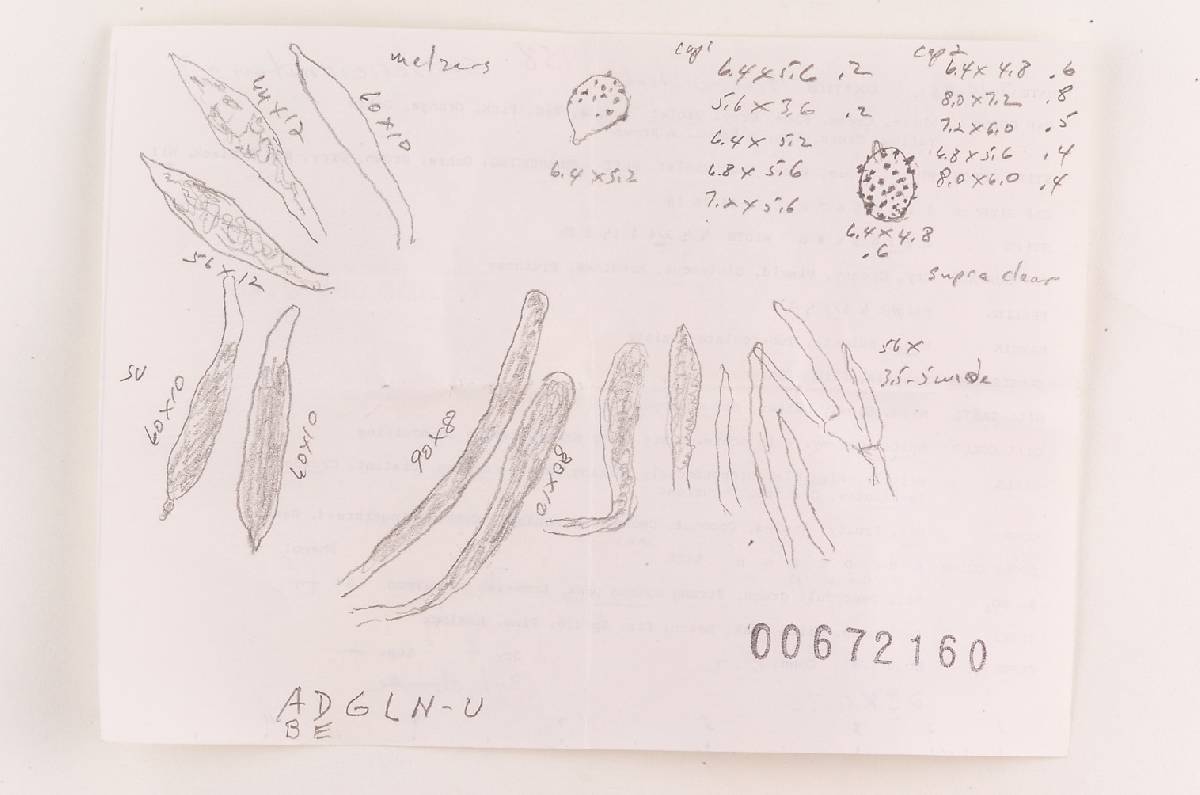 melzers
44 x 12
60 x 10
56 x 12
6.4 x 5.2
cap 1
6.4 x 5.6 .2
5.6 x 3.6 .2
6.4 x 5.2
6.8 x 5.6
7.2 x 5.6
cap 2
6.4 x 4.8 .6
8.0 x 7.2 .8
7.2 x 6.0 .5
6.8 x 5.6 .4
8.0 x 6.0 .4
6.4 x 4.8
.6
supra clear
SU
60 x 10
60 x 10
90 x 8
80 x 10
56 x
3.5-5 wide
00672160
A D G L N-U
B E